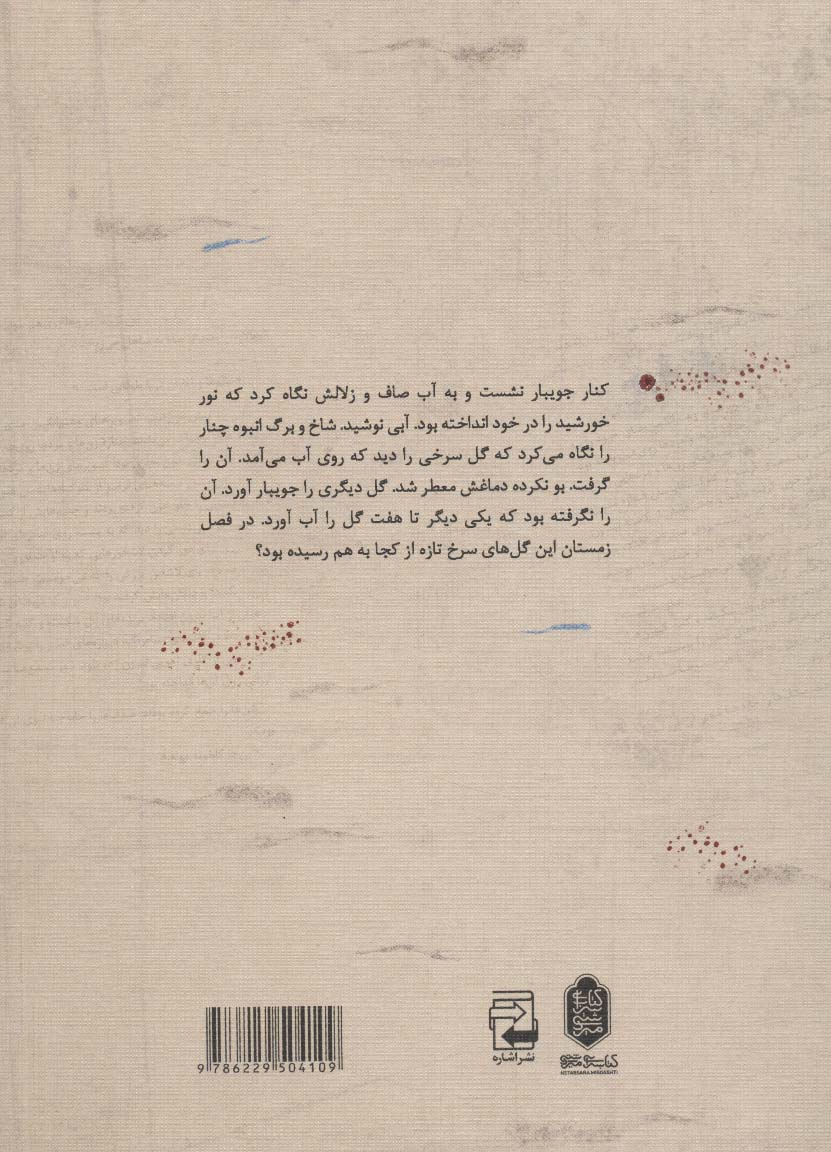 کنار جویبار نشست و به آب صاف و زلالش نگاه کرد که نور
خورشید را در خود انداخته بود. آبی نوشید. شاخ و برگ انبوه چنار
را نگاه می‌کرد که گل سرخی را دید که روی آب می‌آمد. آن را
گرفت. بو نکرده دماغش معطر شد. گل دیگری را جویبار آورد. آن
را نگرفته بود که یکی دیگر تا هفت گل را آب آورد. در فصل
زمستان این گل‌های سرخ تازه از کجا به هم رسیده بود؟
نشر اشاره
کتابسرای میردشتی
KETABSARA MIRDASHTI
9 786229 504109